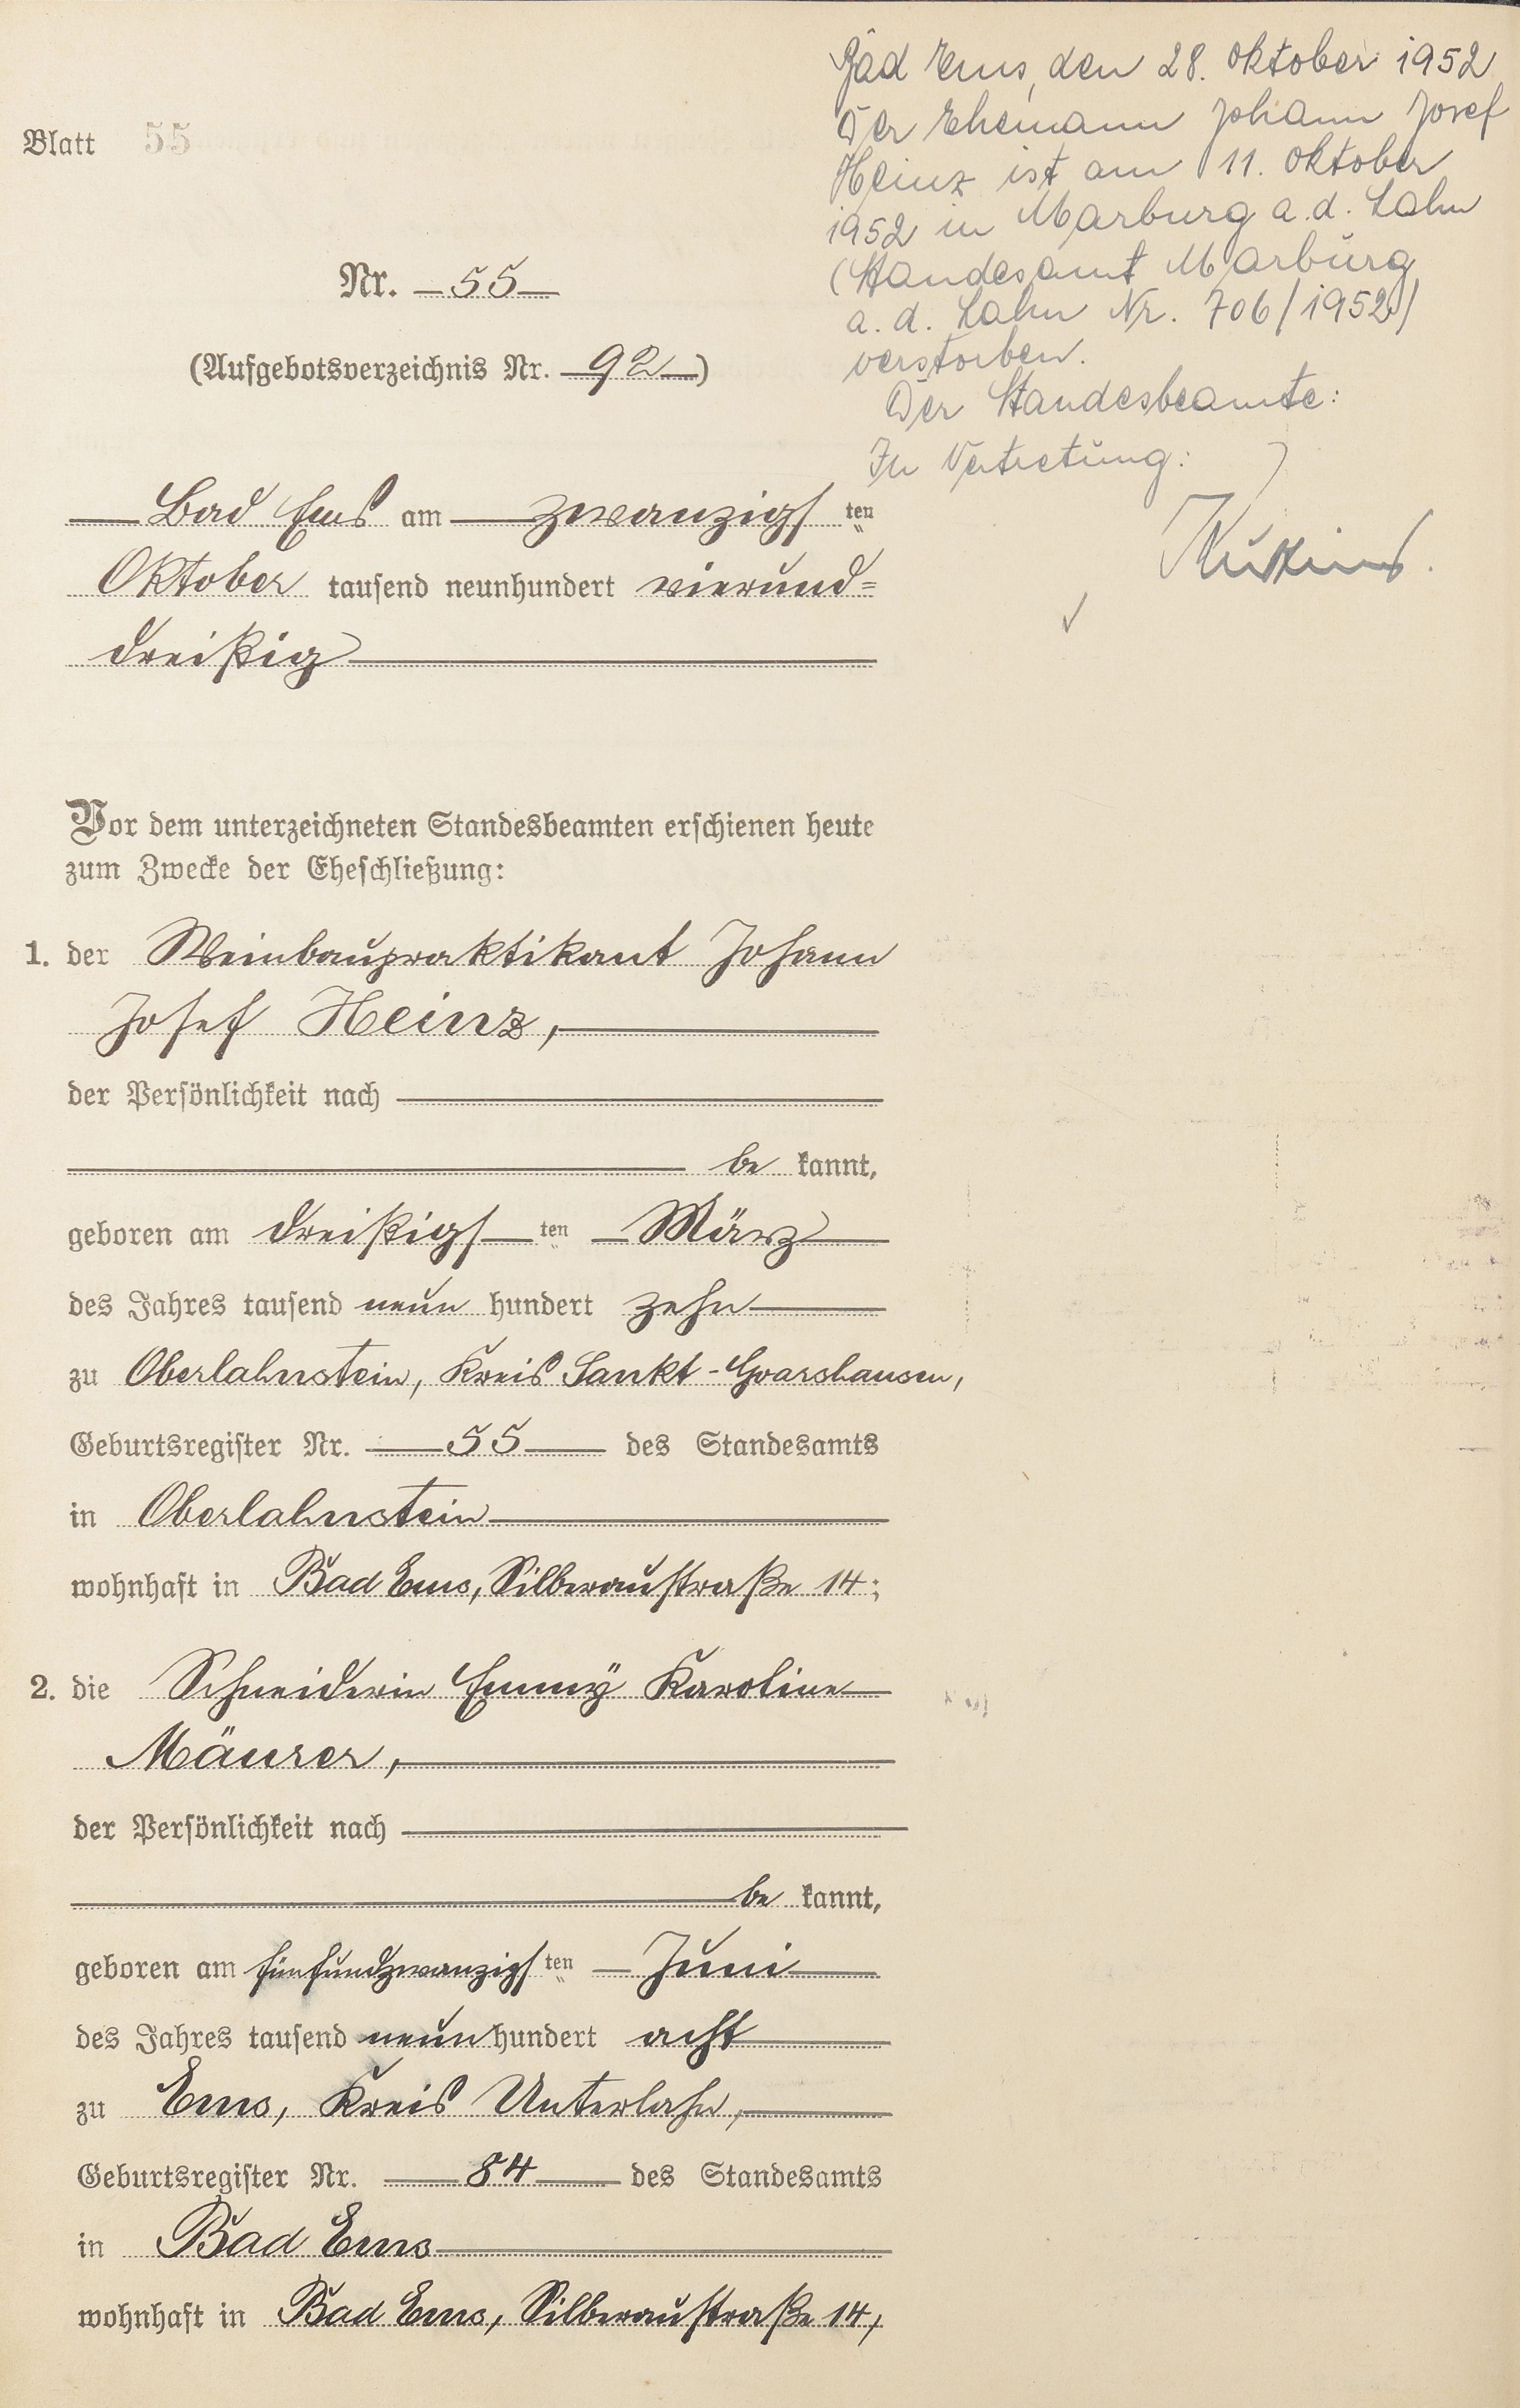 Blatt 55
Nr. 55
(Aufgebotsverzeichnis Nr. 92)
Bad Ems am zwanzigsten
Oktober tausend neunhundert vierund=
dreißig
Vor dem unterzeichneten Standesbeamten erschienen heute
zum Zwecke der Eheschließung:
1. der Weinbaupraktikant Johann
Josef Heinz,
der Persönlichkeit nach
be kannt,
geboren am dreißigsten März
des Jahres tausend neun hundert zehn
zu Oberlahnstein, Kreis Sankt-Goarshausen,
Geburtsregister Nr. 55 des Standesamts
in Oberlahnstein
wohnhaft in Bad Ems, Silberaustraße 14;
2. die Schneiderin Emmy Karoline
Mäurer,
der Persönlichkeit nach
be kannt,
geboren am fünfundzwanzigsten Juni
des Jahres tausend neun hundert acht
zu Ems, Kreis Unterlahn,
Geburtsregister Nr. 84 des Standesamts
in Bad Ems
wohnhaft in Bad Ems, Silberaustraße 14,
Bad Ems, den 28. Oktober 1952
Der Ehemann Johann Josef
Heinz ist am 11. Oktober
1952 in Marburg a.d. Lahn
(Standesamt Marburg
a.d. Lahn Nr. 706/1952)
verstorben.
Der Standesbeamte:
In Vertretung: